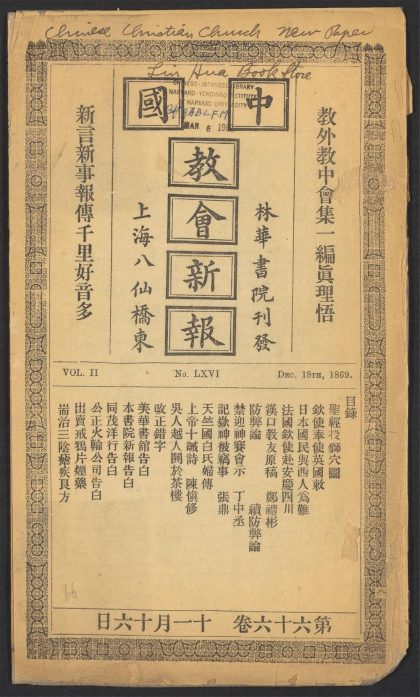 Chinese Christian Church New Paper
Lin Hua Book Store
CHINESE-JAPANESE LIBRARY
HARVARD-YENCHING INSTITUTE
HARVARD UNIVERSITY
MAR 6
中國
教會新報
教外教中會集一編眞理悟
林華書院刊發
上海八仙橋東
新言新事報傳千里好音多
VOL. II No. LXVI DEC. 18TH, 1869.
目錄
聖經投獅穴圖
欽使奉使英國敕
日本國民與西人爲難
法國欽使赴安慶四川
漢口教友原稿 鄭禮彬
防弊論 續防弊論
禁迎神賽會示 丁中丞
記嶽神被竊事 張鼎
天竺國白氏婦傳
上帝十誡詩 陳慎修
吳人越人鬨於茶樓
改正錯字
美華書館告白
本書院新報告白
同茂洋行告白
公正火輪公司告白
出賣戒鴉片煙藥
耑治三陰瘧疾良方
第六十六卷 十一月十六日
66